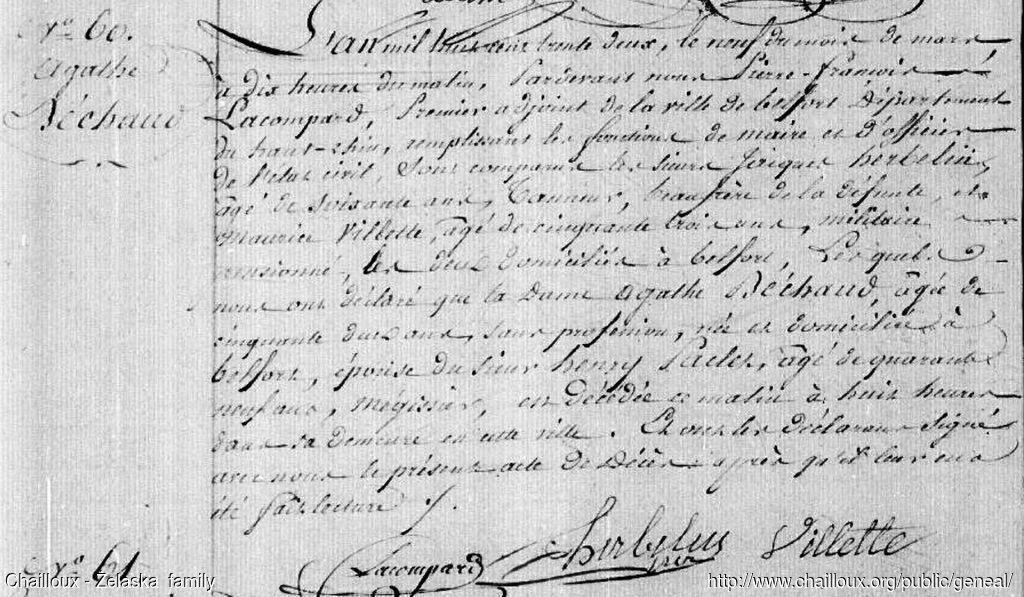 N.º 60.
Agathe
Béchaud
L'an mil huit cent trente deux, le neuf du mois de mars,
à dix heures du matin, Pardevant nous Pierre-françois
Lacompard, Premier adjoint de la ville de belfort Département
du haut-rhin, remplissant les fonctions de maire et d'officier
de l'état civil, Sont comparus les sieurs Jacques herbelin,
âgé de soixante ans, Tanneur, beaufrère de la défunte, et
Maurice Villette, âgé de cinquante trois ans, militaire
pensionné, les deux domiciliés à belfort, Lesquels
nous ont déclaré que la Dame Agathe Béchaud, âgée de
cinquante deux ans, sans profession, née et domiciliée à
belfort, épouse du sieur henry âgé de quarante
neuf ans, mégissier, est décédée ce matin à huit heures
dans sa demeure en cette ville. Et ont les déclarans signé
avec nous le présent acte de Décès après qu'il leur en a
été fait lecture ./.
Lacompard Villette
N.º 61.
Chailloux - Zelaska family
http://www.chailloux.org/public/geneal/